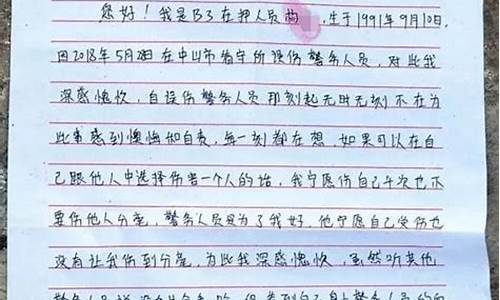 您好！我是B3在押人员尚 ，生于1991年9月10日，
因2018年5月28日在中山市看守所误伤警务人员，对此我
深感愧疚，自误伤警务人员那刻起无时无刻不在为
此事感到懊悔如自责，每一刻都在想，如果可以在自
己跟他人中选择伤害一个人的话，我宁愿伤自己千次也不
要伤他人分毫，警务人员是为了我好，他宁愿自己受伤也
没有让我伤到分毫，为此我深感愧疚，虽然听其他
警务人员说没有什么事